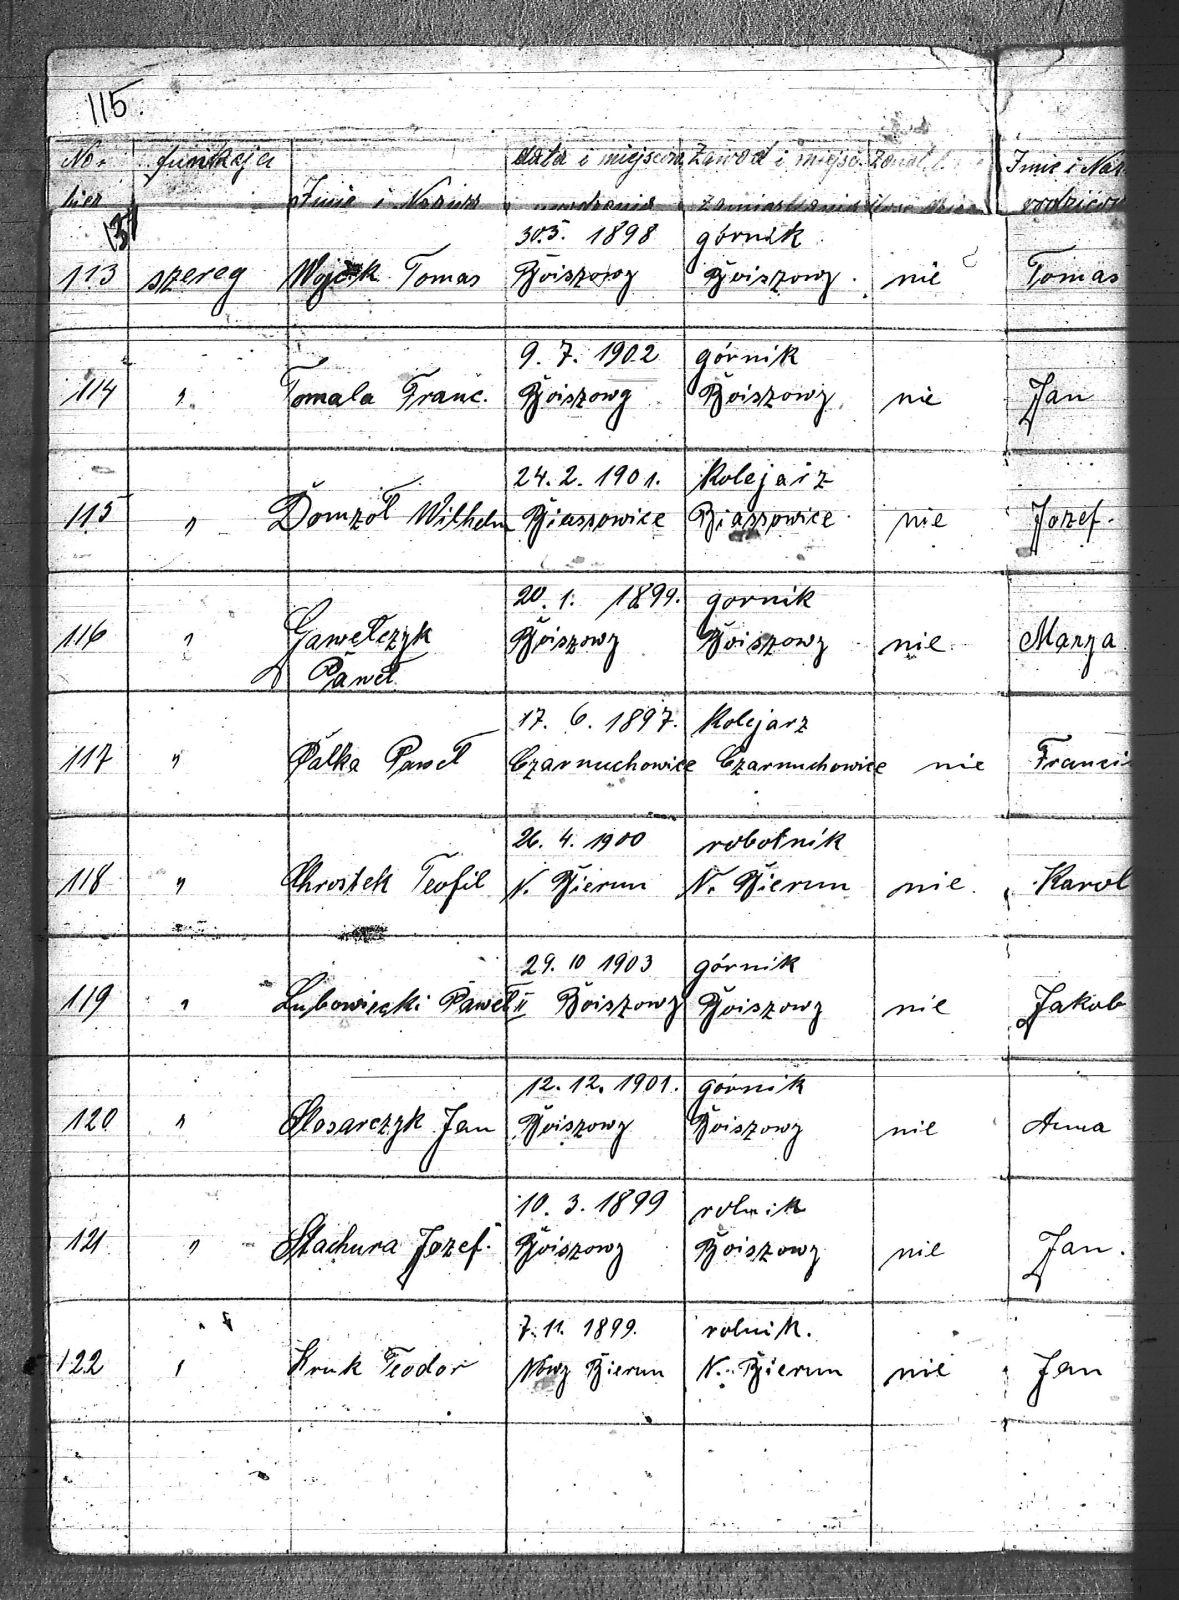 115.
No- funkcja data i miejscow Zawód i miejsc. Imie i Naz
Imie i Nazwis rodziców
30.3. 1898 górnik
113 szereg Wojcik Tomas Bojszowy Bojszowy nie Tomas
9. 7. 1902 górnik
114 " Tomala Franc. Bojszowy Bojszowy nie Jan
24. 2. 1901. Kolejarz
115 " Domżoł Wilhelm Biassowice Biassowice nie Jozef.
20. 1. 1899. gornik
116 " Gawełczyk Bojszowy Bojszowy nie Marya
Paweł
17. 6. 1897. Kolejarz
117 " Pałka Paweł Czarnuchowice Czarnuchowice nie Franci
26. 4. 1900 robotnik
118 " Chrostek Teofil N. Bierun N. Bierun nie Karol
29. 10 1903 górnik
119 " Lubowiecki Paweł II Bojszowy Bojszowy nie Jakob
12. 12. 1901. górnik
120 " Slosarczyk Jan Bojszowy Bojszowy nie Anna
10. 3. 1899 rolnik
121 " Stachura Jozef. Bojszowy Bojszowy nie Jan.
7. 11. 1899. rolnik.
122 " Kruk Teodor Nowy Bierun N. Bierun nie Jan